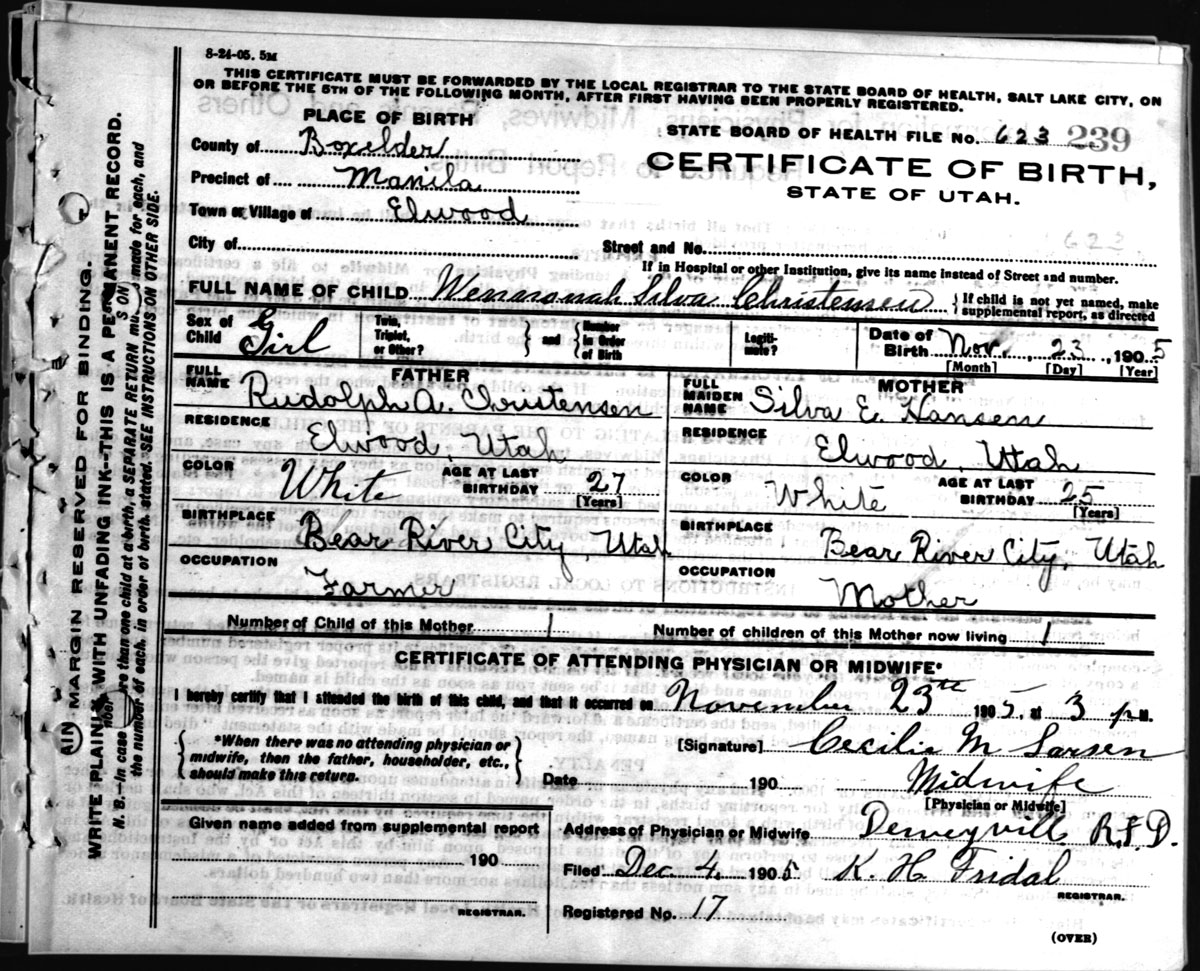 8-24-05. 5M
THIS CERTIFICATE MUST BE FORWARDED BY THE LOCAL REGISTRAR TO THE STATE BOARD OF HEALTH, SALT LAKE CITY, ON
OR BEFORE THE 5TH OF THE FOLLOWING MONTH, AFTER FIRST HAVING BEEN PROPERLY REGISTERED.
PLACE OF BIRTH
STATE BOARD OF HEALTH FILE No. 623 239
County of Boxelder
CERTIFICATE OF BIRTH,
STATE OF UTAH.
Precinct of Manila
Town or Village of Elwood
623
City of Street and No.
If in Hospital or other Institution, give its name instead of Street and number.
FULL NAME OF CHILD Silva Christensen } If child is not yet named, make supplemental report, as directed
Sex of Child Girl Twin, Triplet, or Other? } and { Number in Order of Birth Legiti-mate? Date of Birth Nov. 23, 1905
[Month] [Day] [Year]
FATHER MOTHER
FULL NAME Rudolph A. Christensen FULL MAIDEN NAME Silva E. Hansen
RESIDENCE Elwood, Utah RESIDENCE Elwood, Utah
COLOR White AGE AT LAST BIRTHDAY 27 [Years] COLOR White AGE AT LAST BIRTHDAY 25 [Years]
BIRTHPLACE Bear River City, Utah BIRTHPLACE Bear River City, Utah
OCCUPATION Farmer OCCUPATION Mother
Number of Child of this Mother 1 Number of children of this Mother now living 1
CERTIFICATE OF ATTENDING PHYSICIAN OR MIDWIFE*
I hereby certify that I attended the birth of this child, and that it occurred on November 23th 1905, at 3 P.M.
{ *When there was no attending physician or midwife, then the father, householder, etc., should make this return. }
[Signature] Cecilia M Larsen
Date 190 Midwife
[Physician or Midwife]
Given name added from supplemental report
190
REGISTRAR.
Address of Physician or Midwife Deweyville R.F.D.
Filed Dec 4, 1905 K. H. Fridal
REGISTRAR.
Registered No. 17
(OVER)
MARGIN RESERVED FOR BINDING.
WRITE PLAINLY WITH UNFADING INK--THIS IS A PERMANENT RECORD.
N. B.--In case of more than one child at a birth, a SEPARATE RETURN must be made for each, and
the number of each, in order of birth, stated. SEE INSTRUCTIONS ON OTHER SIDE.